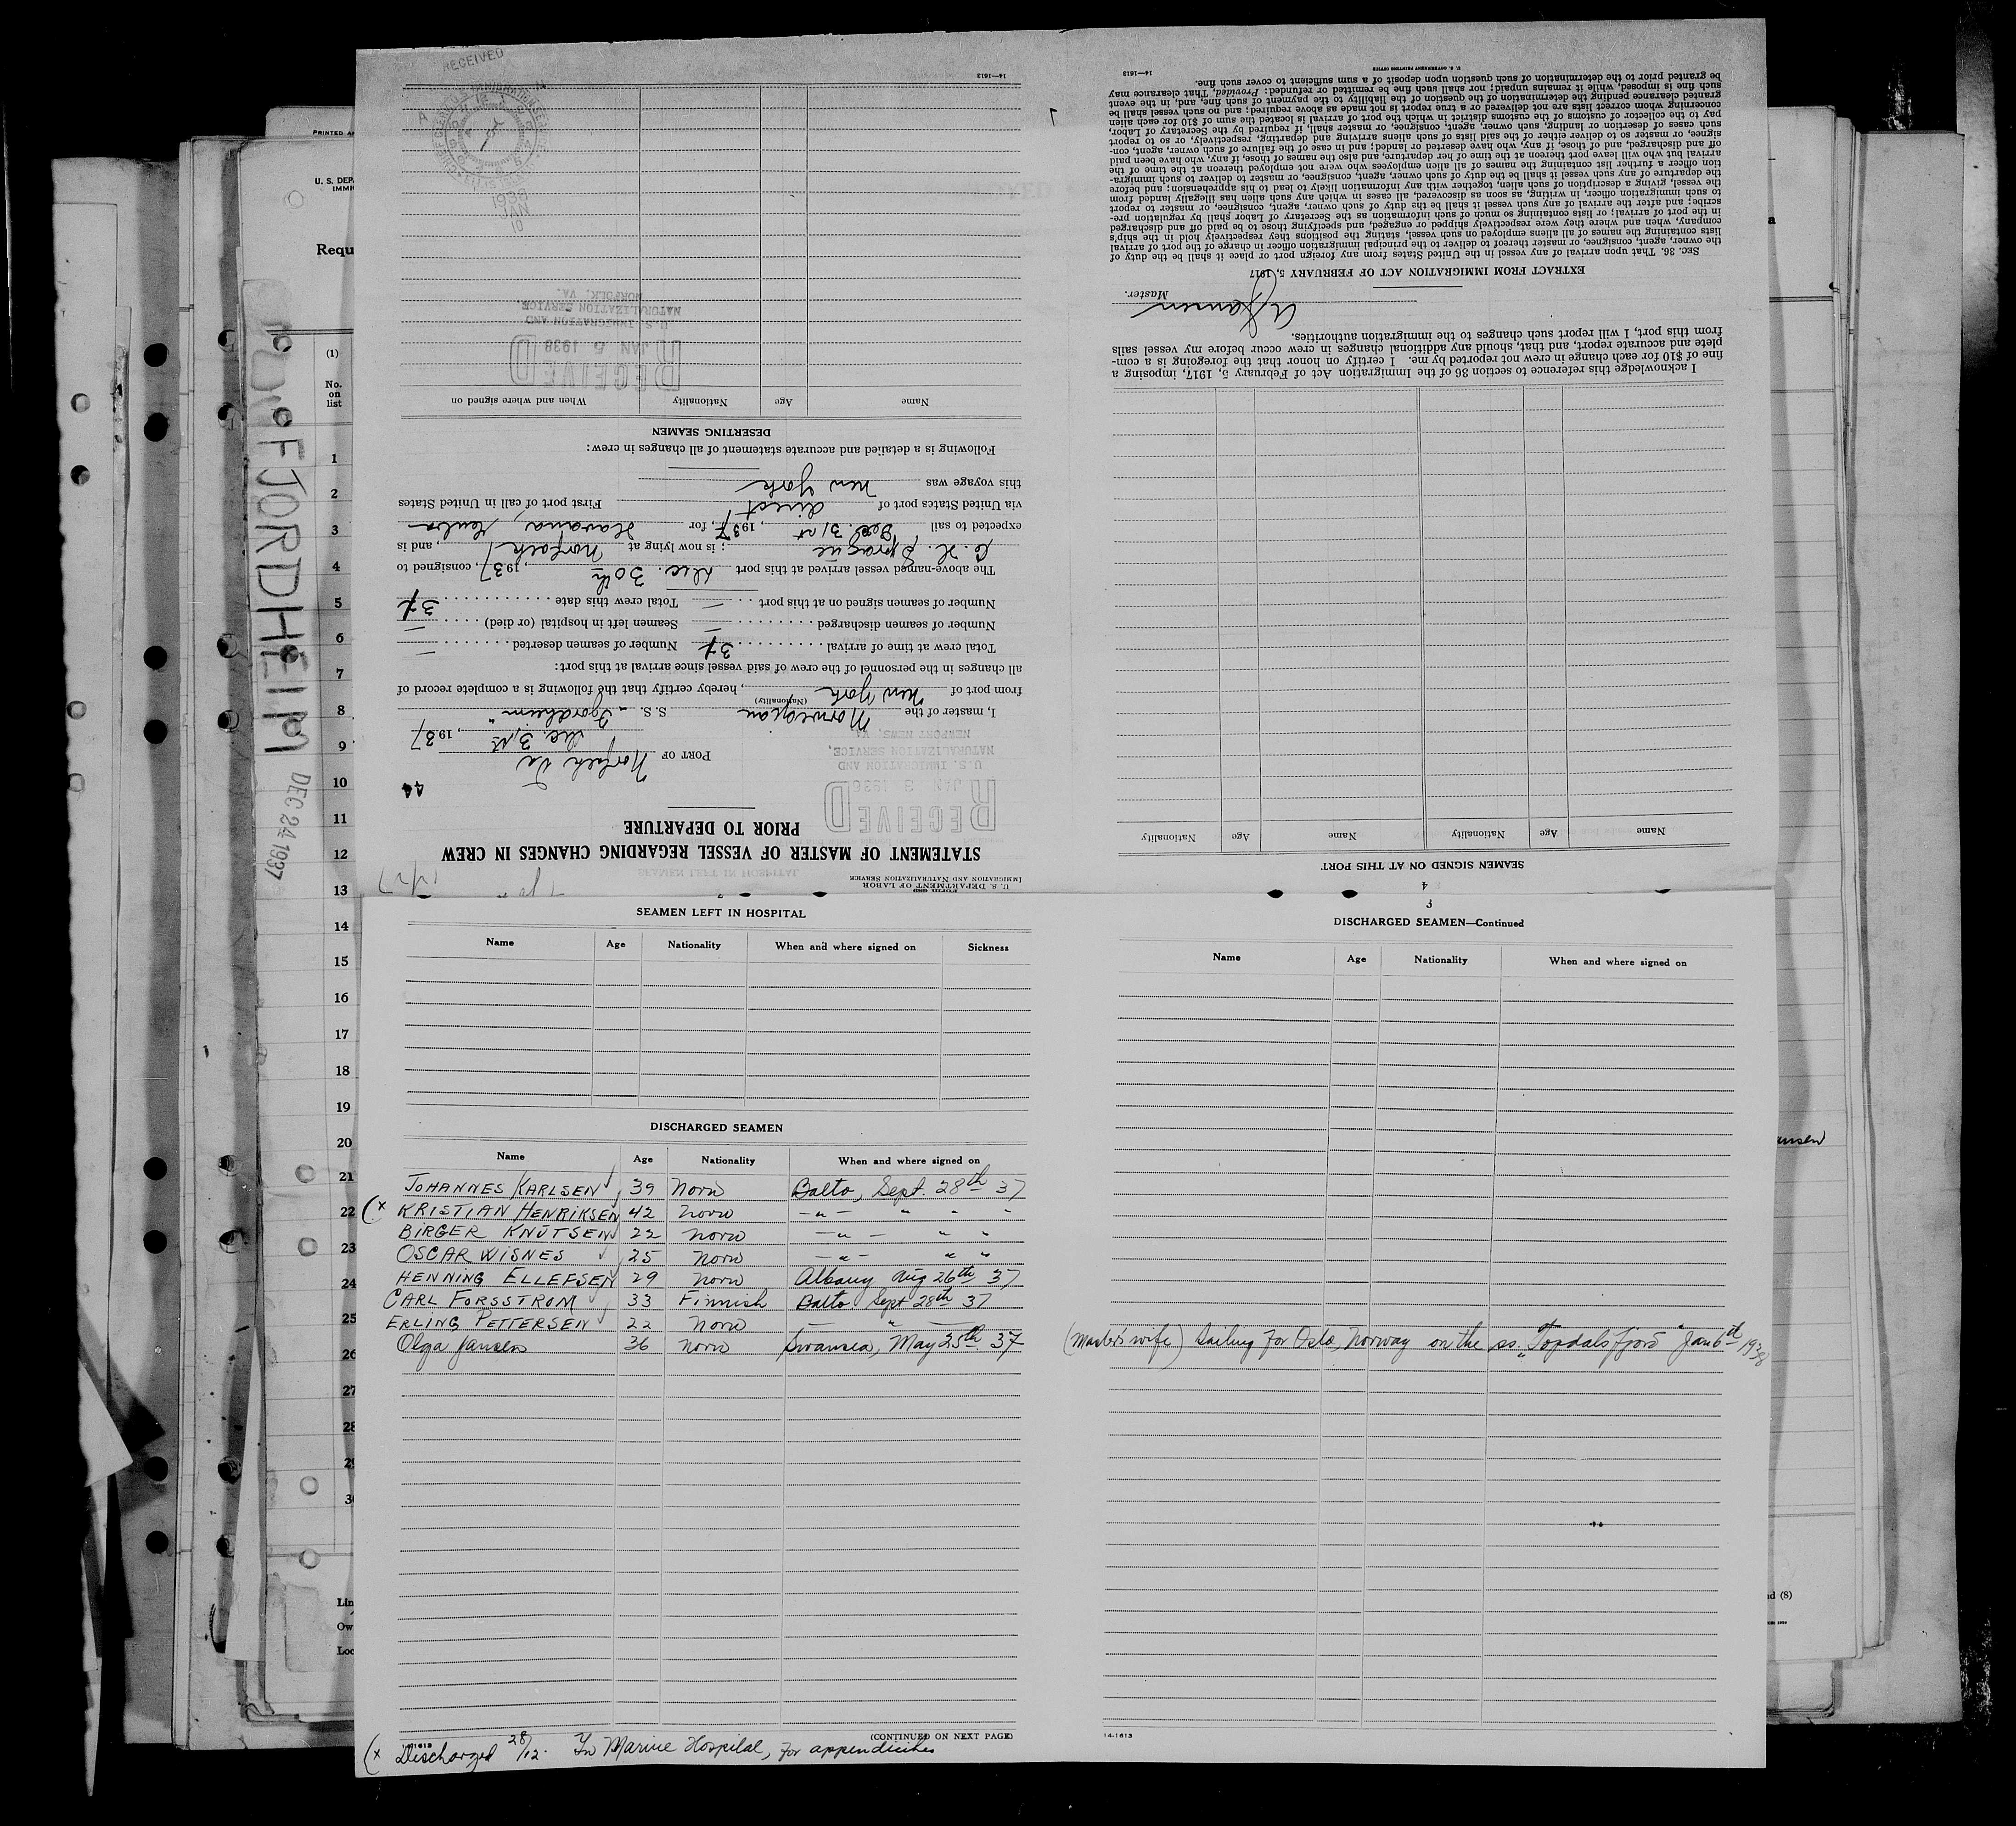 RECEIVED
1938
JAN
10
14—1613
RECEIVED
JAN 5 1938
U.S. IMMIGRATION AND
NATURALIZATION SERVICE,
NORFOLK, VA.
U. S. DEPARTMENT OF LABOR
IMMIGRATION AND NATURALIZATION SERVICE
STATEMENT OF MASTER OF VESSEL REGARDING CHANGES IN CREW
PRIOR TO DEPARTURE
RECEIVED
JAN 3 1938
U.S. IMMIGRATION AND
NATURALIZATION SERVICE,
NEWPORT NEWS, VA.
44
PORT OF Norfolk Va
Dec. 31st, 1937
I, master of the Norwegian S. S. "Fjordheim"
(Nationality)
from port of New York, hereby certify that the following is a complete record of
all changes in the personnel of the crew of said vessel since arrival at this port:
Total crew at time of arrival Number of seamen deserted —
Number of seamen discharged — Seamen left in hospital (or died) —
Number of seamen signed on at this port — Total crew this date
The above-named vessel arrived at this port Dec. 30th, 1937, consigned to
C. H. Sprague; is now lying at Norfolk, and is
expected to sail Dec. 31st, 1937, for Havana,
via United States port of direct First port of call in United States
this voyage was New York
Following is a detailed and accurate statement of all changes in crew:
DESERTING SEAMEN
Name Age Nationality When and where signed on
14—1613
4
SEAMEN SIGNED ON AT THIS PORT
Name Age Nationality Name Age Nationality
I acknowledge this reference to section 36 of the Immigration Act of February 5, 1917, imposing a
fine of $10 for each change in crew not reported by me. I certify on honor that the foregoing is a com-
plete and accurate report, and that, should any additional changes in crew occur before my vessel sails
from this port, I will report such changes to the immigration authorities.
Master.
EXTRACT FROM IMMIGRATION ACT OF FEBRUARY 5, 1917
SEC. 36. That upon arrival of any vessel in the United States from any foreign port or place it shall be the duty of
the owner, agent, consignee, or master thereof to deliver to the principal immigration officer in charge of the port of arrival
lists containing the names of all aliens employed on such vessel, stating the positions they respectively hold in the ship's
company, when and where they were respectively shipped or engaged, and specifying those to be paid off and discharged
in the port of arrival; or lists containing so much of such information as the Secretary of Labor shall by regulation pre-
scribe; and after the arrival of any such vessel it shall be the duty of such owner, agent, consignee, or master to report
to such immigration officer, in writing, as soon as discovered, all cases in which any such alien has illegally landed from
the vessel, giving a description of such alien, together with any information likely to lead to his apprehension; and before
the departure of any such vessel it shall be the duty of such owner, agent, consignee, or master to deliver to such immigra-
tion officer a further list containing the names of all alien employees who were not employed thereon at the time of the
arrival but who will leave port thereon at the time of her departure, and also the names of those, if any, who have been paid
off and discharged, and of those, if any, who have deserted or landed; and in case of the failure of such owner, agent, con-
signee, or master so to deliver either of the said lists of such aliens arriving and departing, respectively, or so to report
such cases of desertion or landing, such owner, agent, consignee, or master shall, if required by the Secretary of Labor,
pay to the collector of customs of the customs district in which the port of arrival is located the sum of $10 for each alien
concerning whom correct lists are not delivered or a true report is not made as above required; and no such vessel shall be
granted clearance pending the determination of the question of the liability to the payment of such fine, and, in the event
such fine is imposed, while it remains unpaid; nor shall such fine be remitted or refunded: Provided, That clearance may
be granted prior to the determination of such question upon deposit of a sum sufficient to cover such fine.
U. S. GOVERNMENT PRINTING OFFICE 14—1613
PRINTED
U. S. DEP
IMMI
Requ
FJORDHEIM
DEC 24 1937
(1)
No.
on
list
1
2
3
4
5
6
7
8
9
10
11
12
13
14
15
16
17
18
19
20
21
22
23
24
25
26
27
28
29
30
Lin
Ow
Loc
SEAMEN LEFT IN HOSPITAL
Name Age Nationality When and where signed on Sickness
DISCHARGED SEAMEN
Name Age Nationality When and where signed on
JOHANNES KARLSEN 39 Norw Balto, Sept. 28th 37
(x KRISTIAN HENRIKSEN 42 Norw —"— " " "
BIRGER KNUTSEN 22 Norw —"— " "
OSCAR WISNES 25 Norw —"— " "
HENNING ELLEFSEN 29 Norw Albany Aug 26th 37
CARL FORSSTROM 33 Finnish Balto Sept 28th 37
ERLING PETTERSEN 22 Norw — " —
Olga Jansen 36 Norw Swansea, May 25th 37
(CONTINUED ON NEXT PAGE)
14-1613
(x Discharged 28/12. In Marine Hospital, for appendicites
3
DISCHARGED SEAMEN—Continued
Name Age Nationality When and where signed on
(Master's wife) Sailing for Oslo, Norway on the ss. "Topdalsfjord" Jan 6th 1938
14-1613
d (8)